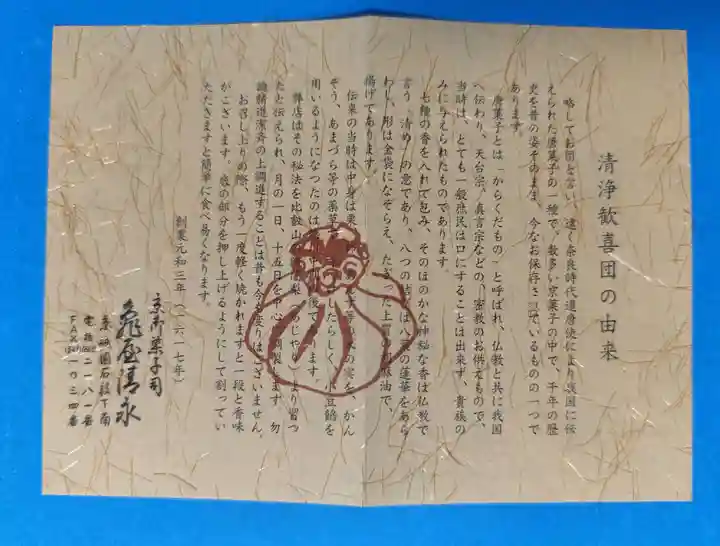 清浄歓喜団の由来
略してお団と言い、遠く奈良時代遣唐使により我国に伝
えられた唐菓子の一種で、数多い京菓子の中で、千年の歴
史を昔の姿そのまま、今なお保存されているものの一つで
あります。
唐菓子とは「からくだもの」と呼ばれ、仏教と共に我国
へ伝わり、天台宗、真言宗などの、密教のお供えもので、
当時は、とても一般庶民は口にすることは出来ず、貴族の
みに与えられたものであります。
七種の香を入れて包み、そのほのかな神秘な香は仏教で
言う「清め」の意であり、八つの結びは八葉の蓮華をあら
わし、形は金袋になぞらえ、たぎった上質の胡麻油で、
揚げてあります。
伝来の当時は中身は栗、等の木の実を、かん
ぞう、あまづら等の薬草したらしく、小豆餡を
用いるようになったのは後であります。
弊店はその秘法を比叡山の阿闍梨（あじゃり）より習っ
たと伝えられ、月の一日、十五日を中心に調製します。勿
論精進潔斉の上調進することは昔も今も変りはございません。
お召し上りの際、もう一度軽く焼かれますと一段と香味
がございます。底の部分を押し上げるようにして割ってい
ただきますと簡単に食べ易くなります。
創業元和三年（一六一七年）
京御菓子司
亀屋清永
京祇園石段下南
電話二一八一番
FAX一〇三四番